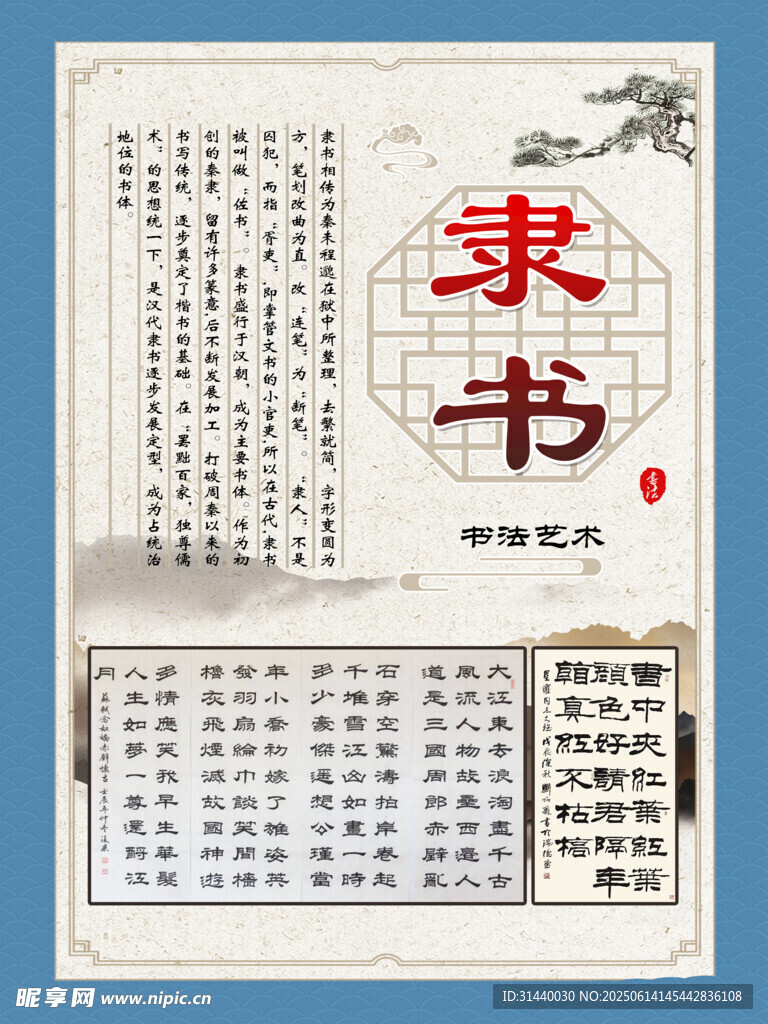 隶书
书法艺术
書法
隶书相传为秦末程邈在狱中所整理，去繁就简，字形变圆为
方，笔划改曲为直。改“连笔”为“断笔”。“隶人”不是
囚犯，而指“胥吏”，即掌管文书的小官吏，所以在古代，隶书
被叫做“佐书”。隶书盛行于汉朝，成为主要书体。作为初
创的秦隶，留有许多篆意，后不断发展加工。打破周秦以来的
书写传统，逐步奠定了楷书的基础。在“罢黜百家，独尊儒
术”的思想统一下，是汉代隶书逐步发展定型，成为占统治
地位的书体。
書中夾紅葉紅葉
顔色好請君隔年
看真紅不枯槁
大江東去浪淘盡千古
風流人物故壘西邊人
道是三國周郎赤壁亂
石穿空驚濤拍岸卷起
千堆雪江山如畫一時
多少豪傑遥想公瑾當
年小喬初嫁了雄姿英
發羽扇綸巾談笑間檣
櫓灰飛煙滅故國神游
多情應笑我早生華髮
人生如夢一尊還酹江
月
蘇軾念奴嬌赤壁懷古
昵享网 www.nipic.cn
ID:31440030 NO:20250614145442836108